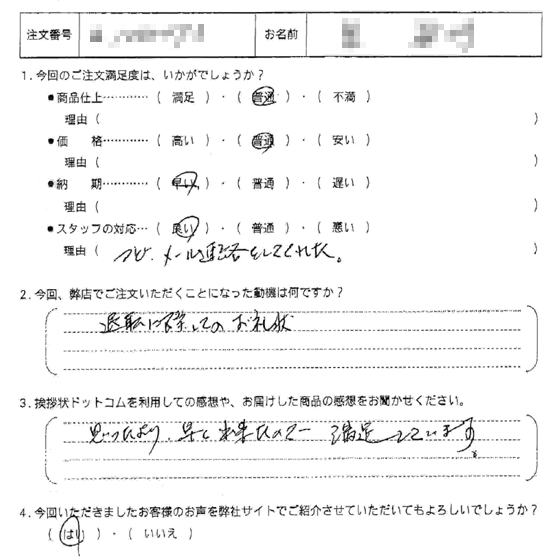 注文番号 お名前
1.今回のご注文満足度は、いかがでしょうか？
●商品仕上………… ( 満足 ) ・ ( 普通 ) ・ ( 不満 )
理由 ( )
●価 格………… ( 高い ) ・ ( 普通 ) ・ ( 安い )
理由 ( )
●納 期………… ( 早い ) ・ ( 普通 ) ・ ( 遅い )
理由 ( )
●スタッフの対応… ( 良い ) ・ ( 普通 ) ・ ( 悪い )
理由 ( メール連絡をしてくれた。 )
2.今回、弊店でご注文いただくことになった動機は何ですか？
退職に際してのお礼状
3.挨拶状ドットコムを利用しての感想や、お届けした商品の感想をお聞かせください。
思ったより、早く出来たので 満足しています。
4.今回いただきましたお客様のお声を弊社サイトでご紹介させていただいてもよろしいでしょうか？
( はい ) ・ ( いいえ )